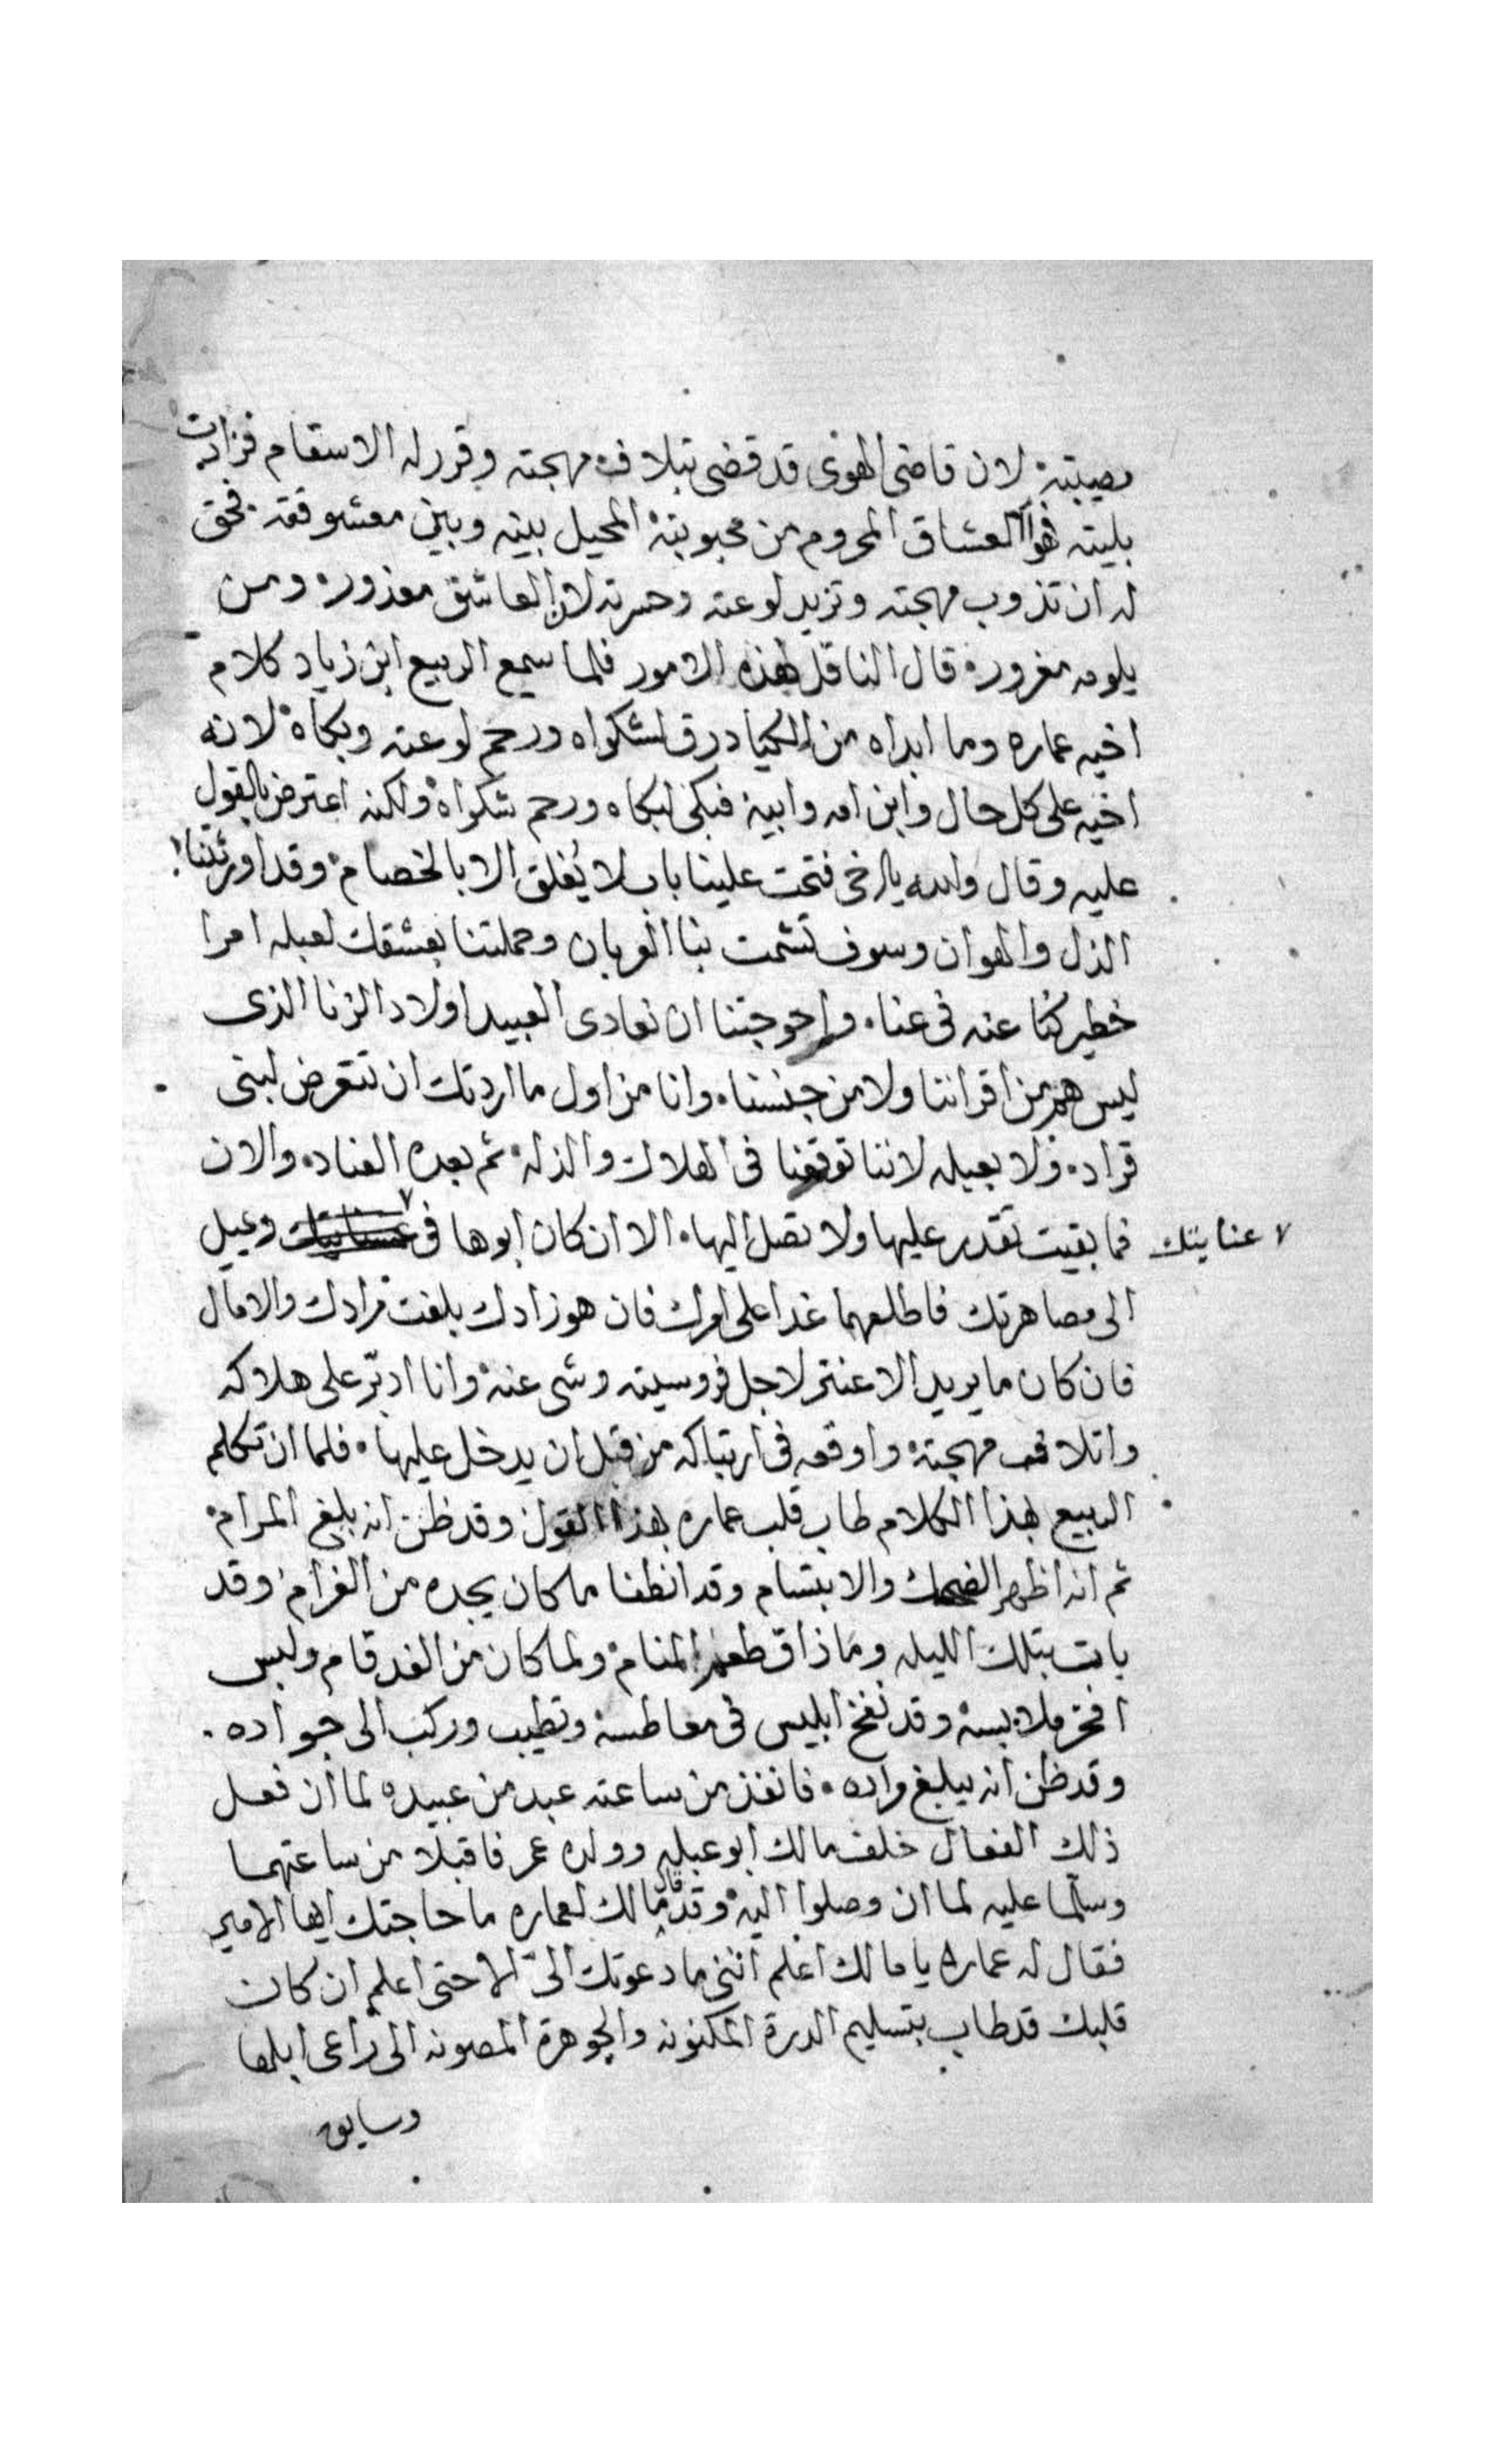 مصيبته لان قاضى الهوى قد قضى بتلاف مهجته وقرر له الاسقام فزادت
بليته فهو العشاق المحروم من محبوبته المحيل بينه وبين معشوقته يحق
له ان تذوب مهجته وتزيد لوعته وحسرته لان العاشق معذور ومن
يلومه مغرور قال الناقل لهذه الامور فلما سمع الربيع ابن زياد كلام
اخيه عماره وما ابداه من رق لشكواه ورحم لوعته وبكاه لانه
اخيه على كل حال وابن امه وابيه فبكى لبكاه ورحم شكواه ولكنه اعترض بالقول
عليه وقال والله يا اخى فتحت علينا باب لا يُغلق الا بالخصام وقد اورثتنا
الذل والهوان وسوف تشمت بنا العربان وحملتنا بعشقك لعبله امرا
خطير كنا عنه فى غنا وإحوجتنا ان نعادى العبيد اولاد الزنا الذى
ليس هم من اقراننا ولا من جنسنا وانا من اول ما اردتك ان تتعرض لبنى
قراد ولا بعبله لاننا توقعنا فى الهلاك والذله ثم بعده العناد والان
فما بقيت تقدر عليها ولا تصل اليها الا ان كان ابوها فى ٧ وعيل
٧ عنايتك
الى مصاهرتك فاطلعهما غدا على امرك فان هو زادك بلغت مرادك والامال
فان كان ما يريد الا عنتر لاجل فروسيته وشى عنه وانا ادبّر على هلاكه
واتلاف مهجته واوقعه فى ارتباكه من قبل ان يدخل عليها فلما ان تكلم
الربيع بهذا الكلام طاب قلب عماره بهذا القول وقد ظن انه بلغ المرام
ثم انه اظهر الضحك والابتسام وقد انطفا ما كان يجده من الغرام وقد
بات بتلك الليله وما ذاق طعم المنام ولما كان من الغد قام ولبس
افخر ملابسه وقد نفخ ابليس فى معاطسه وتطيب وركب الى جواده
وقد ظن انه يبلغ مراده فانفذ من ساعته عبد من عبيده لما ان فعل
ذلك الفعال خلف مالك ابو عبله وولده عمر فاقبلا من ساعتهما
وسلما عليه لما ان وصلوا اليه وقد قال مالك لعماره ما حاجتك ايها الامير
فقال له عماره يا مالك اعلم اننى ما دعوتك الىّ الا حتى اعلم ان كان
قلبك قد طاب بتسليم الدرة المكنونه والجوهرة المصونه الى راعى ابلها
وسايق